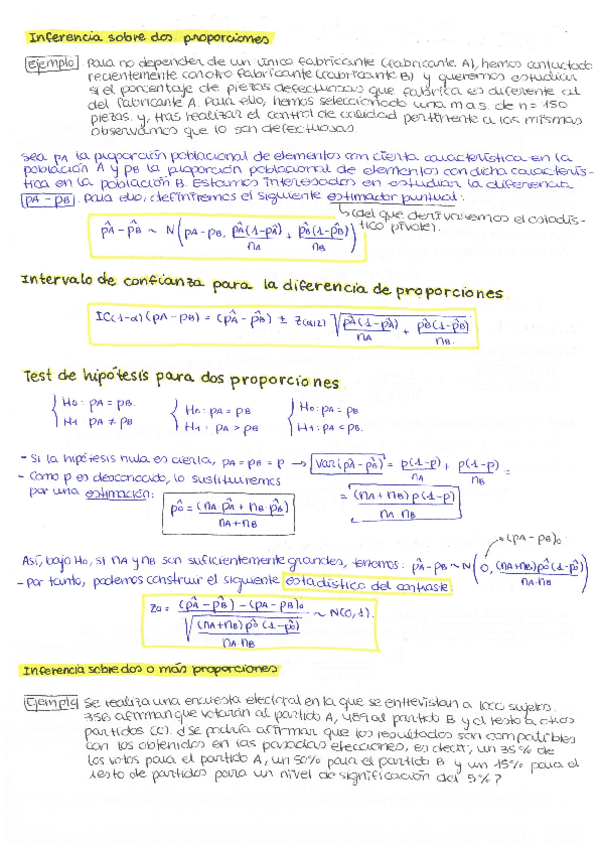 Inferencia sobre dos proporciones
Ejemplo Para no depender de un único fabricante (fabricante A), hemos contactado
recientemente con otro fabricante (fabricante B) y queremos estudiar
si el porcentaje de piezas defectuosas que fabrica es diferente al
del fabricante A. Para ello, hemos seleccionado una m.a.s. de n = 150
piezas. y, tras realizar el control de calidad pertinente a las mismas
observamos que lo son defectuosas.
Sea pA la proporción poblacional de elementos con cierta característica en la
población A y pB la proporción poblacional de elementos con dicha caracterís-
tica en la población B. Estamos interesados en estudiar la diferencia
pA - pB. Para ello, definiremos el siguiente estimador puntual:
(del que derivaremos el estadís-
tico pivote).
p̂A - p̂B ~ N(pA - pB, p̂A(1-p̂A)/nA + p̂B(1-p̂B)/nB)
Intervalo de confianza para la diferencia de proporciones
IC(1-α)(pA - pB) = (p̂A - p̂B) ± z(α/2) √(p̂A(1-p̂A)/nA + p̂B(1-p̂B)/nB)
Test de hipótesis para dos proporciones
{H0: pA = pB. {H0: pA = pB {H0: pA = pB
{H1 pA ≠ pB {H1: pA > pB {H1: pA < pB.
- Si la hipótesis nula es cierta, pA = pB = p → Var(p̂A - p̂B) = p(1-p)/nA + p(1-p)/nB =
- Como p es desconocido, lo sustituiremos
por una estimación: p̂0 = (nA p̂A + nB p̂B)/(nA + nB) = (nA + nB) p(1-p)/(nA nB)
Así, bajo H0, si nA y nB son suficientemente grandes, tenemos: p̂A - p̂B ~ N(0, (nA+nB)p̂0(1-p̂0)/(nA·nB))
→(pA - pB)0
- Por tanto, podemos construir el siguiente estadístico del contraste.
Z0 = ((p̂A - p̂B) - (pA - pB)0)/√((nA+nB) p̂0(1-p̂0)/(nA·nB)) ~ N(0,1).
Inferencia sobre dos o más proporciones
Ejemplo Se realiza una encuesta electoral en la que se entrevistan a 1000 sujetos.
356 afirman que votarán al partido A, al partido B y el resto a otros
partidos (C). ¿Se podría afirmar que los resultados son compatibles
con los obtenidos en las pasadas elecciones, es decir, un 35% de
los votos para el partido A, un 50% para el partido B y un 15% para el
resto de partidos para un nivel de significación del 5%?